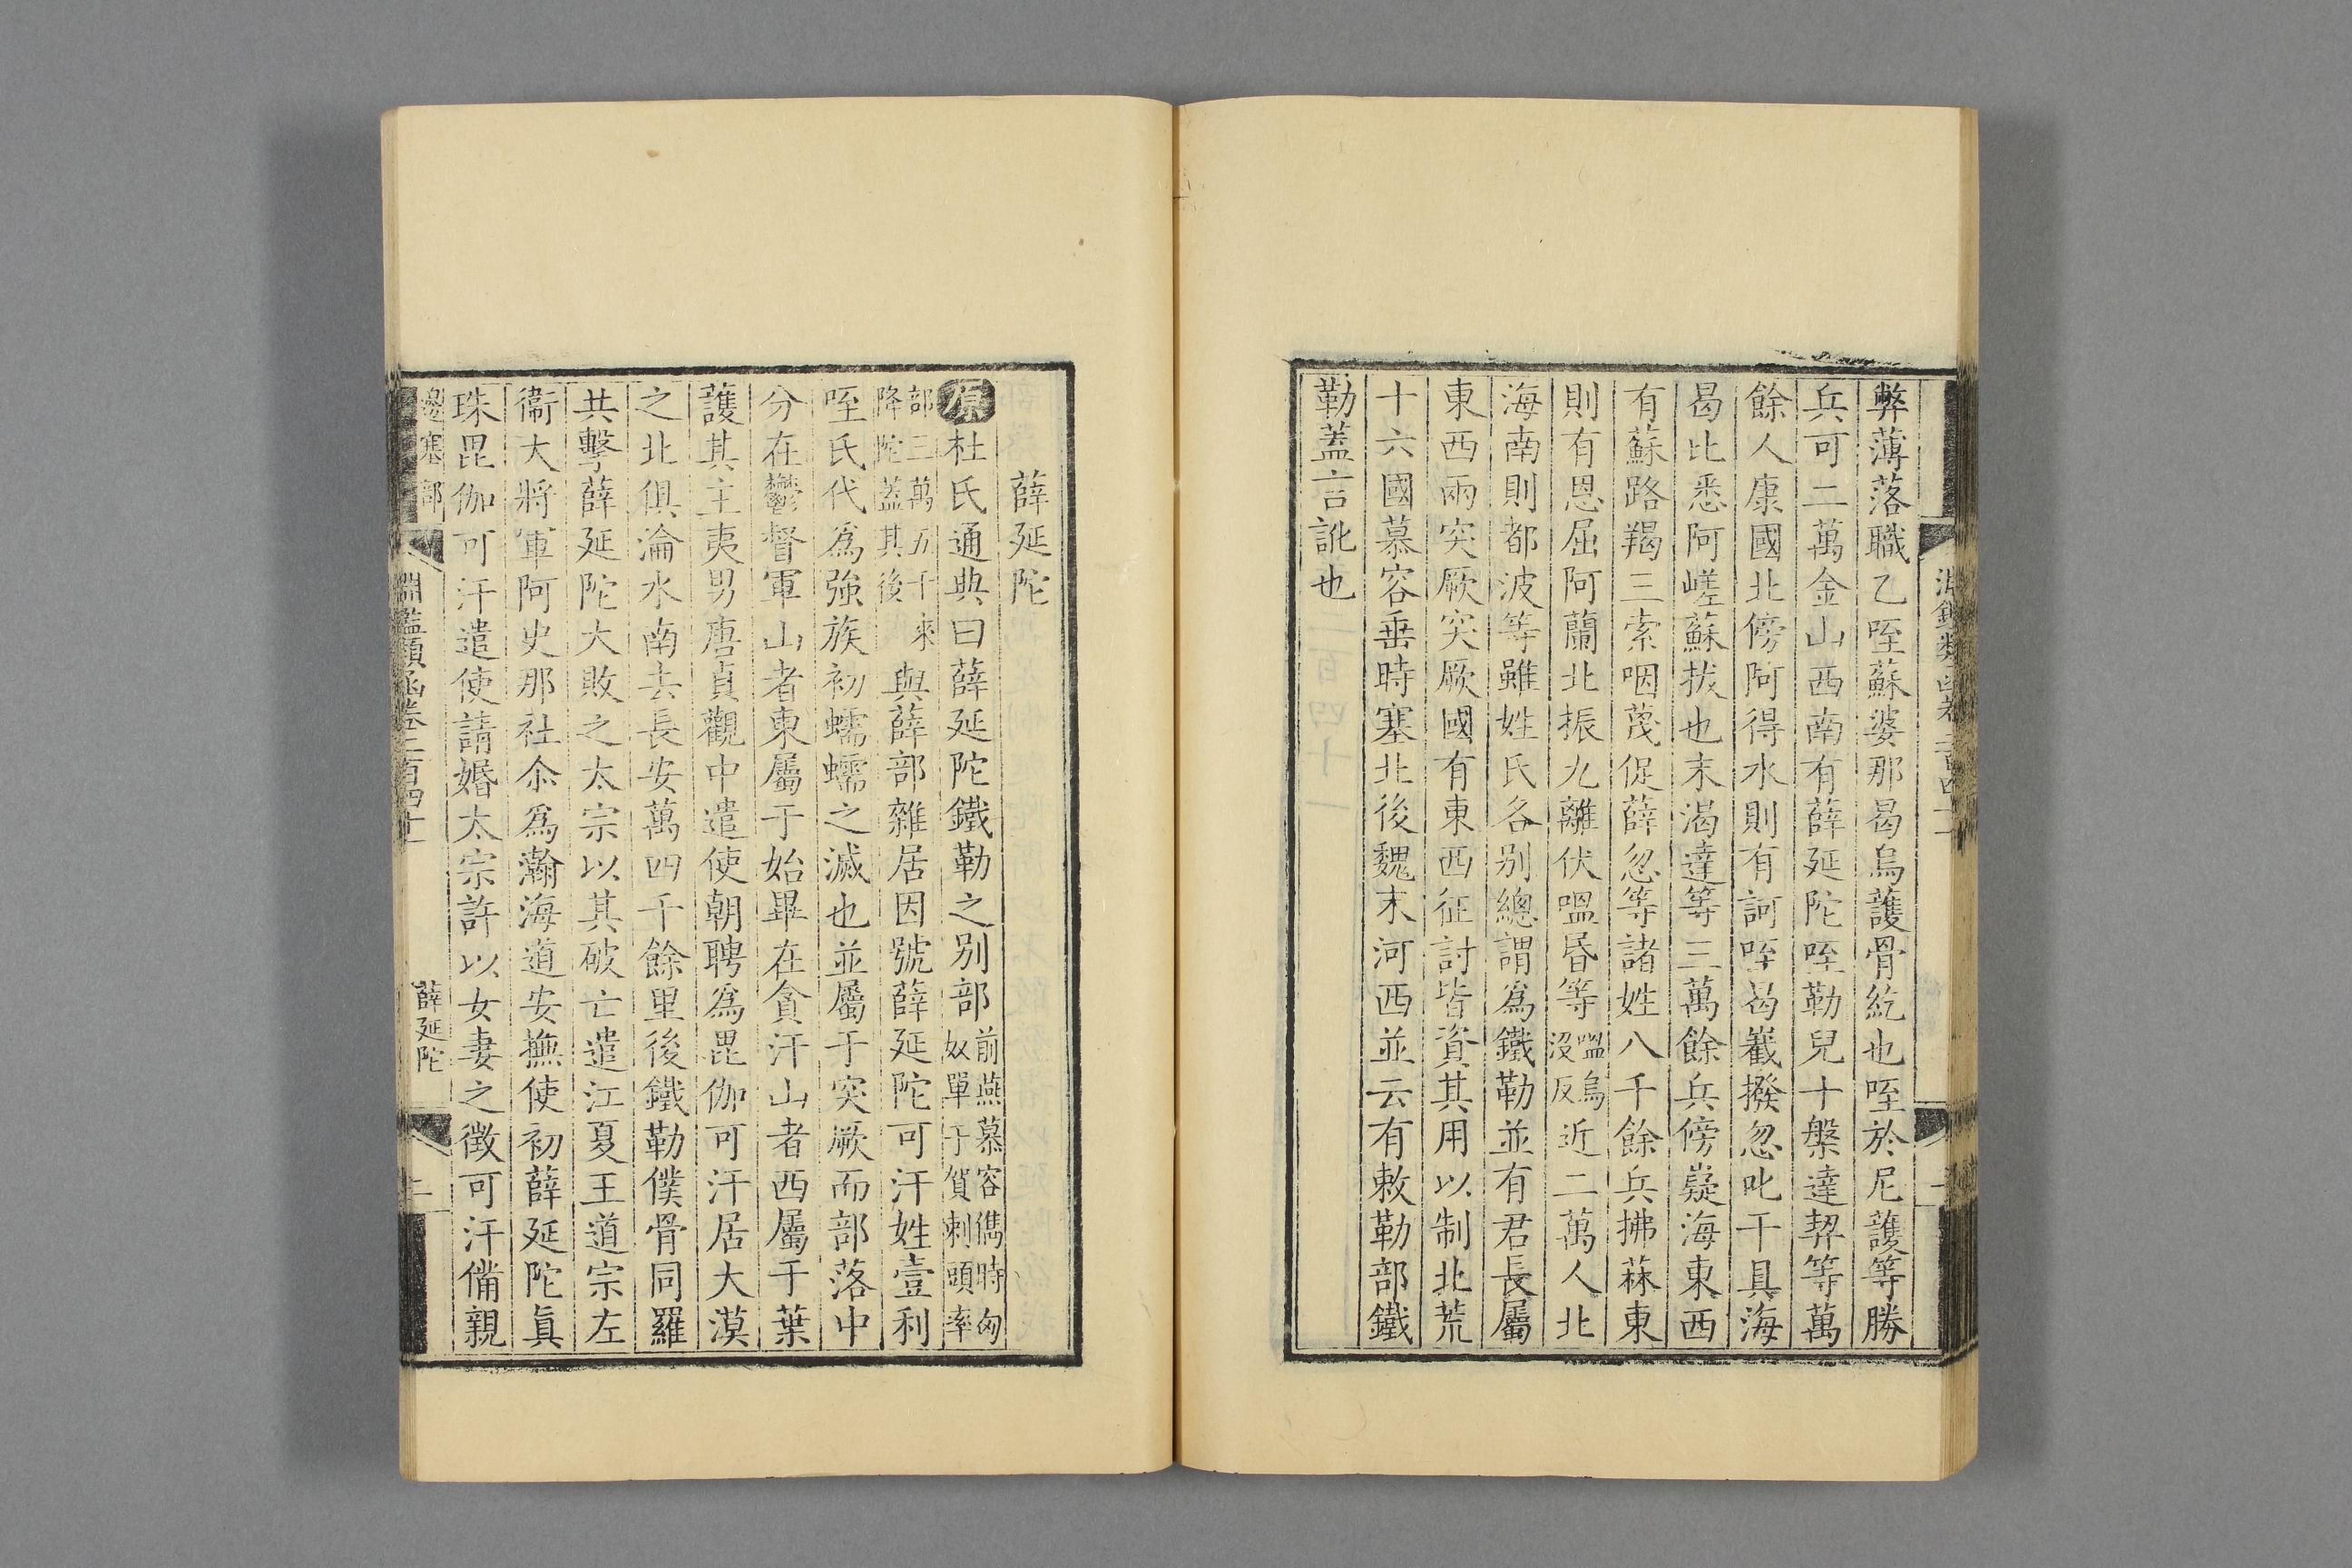 弊薄落職乙咥蘇婆那曷烏護骨紇也咥於尼護等勝
兵可二萬金山西南有薛延陀咥勒兒十槃達契等萬
餘人康國北傍阿得水則有訶咥曷嶻撥忽叱干具海
曷比悉阿嵯蘇拔也末渴達等三萬餘兵傍嶷海東西
有蘇路羯三索咽蔑促薛忽等諸姓八千餘兵拂菻東
則有恩屈阿蘭北振九離伏嗢昏等嗢烏沒反近二萬人北
海南則都波等雖姓氏各別總謂為鐵勒並有君長屬
東西兩突厥突厥國有東西征討皆資其用以制北荒
十六國慕容垂時塞北後魏末河西並云有敕勒部鐵
勒蓋言訛也
薛延陀
原杜氏通典曰薛延陀鐵勒之別部前燕慕容儁時匈奴單于賀剌頭率
部三萬五千來降陀蓋其後與薛部雜居因號薛延陀可汗姓壹利
咥氏代為強族初蠕蠕之滅也並屬于突厥而部落中
分在鬱督軍山者東屬于始畢在貪汗山者西屬于葉
護其主夷男唐貞觀中遣使朝聘為毘伽可汗居大漠
之北俱淪水南去長安萬四千餘里後鐵勒僕骨同羅
共擊薛延陀大敗之太宗以其破亡遣江夏王道宗左
衞大將軍阿史那社尒為瀚海道安撫使初薛延陀眞
珠毘伽可汗遣使請婚太宗許以女妻之徵可汗備親
邊塞部
淵鑑類函卷二百四十一
薛延陀
二